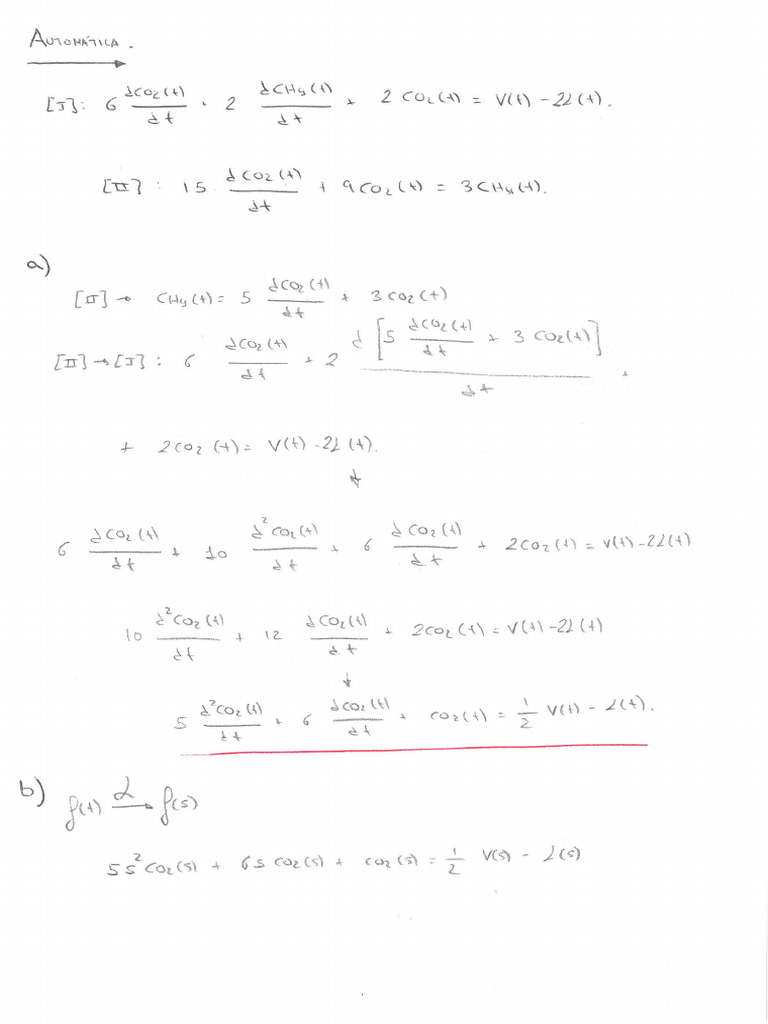 AUTOMÁTICA.
[I]: 6 dCO2(t)/dt + 2 dCH4(t)/dt + 2 CO2(t) = V(t) - 2L(t).
[II]: 15 dCO2(t)/dt + 9CO2(t) = 3CH4(t).
a)
[II] → CH4(t) = 5 dCO2(t)/dt + 3CO2(t)
[II] → [I]: 6 dCO2(t)/dt + 2 d[5 dCO2(t)/dt + 3 CO2(t)]/dt +
+ 2CO2(t) = V(t) - 2L(t).
↓
6 dCO2(t)/dt + 10 d²CO2(t)/dt + 6 dCO2(t)/dt + 2CO2(t) = V(t) - 2L(t)
10 d²CO2(t)/dt + 12 dCO2(t)/dt + 2CO2(t) = V(t) - 2L(t)
↓
5 d²CO2(t)/dt + 6 dCO2(t)/dt + CO2(t) = 1/2 V(t) - L(t).
b) f(t) ℒ→ f(s)
5s²CO2(s) + 6s CO2(s) + CO2(s) = 1/2 V(s) - L(s)